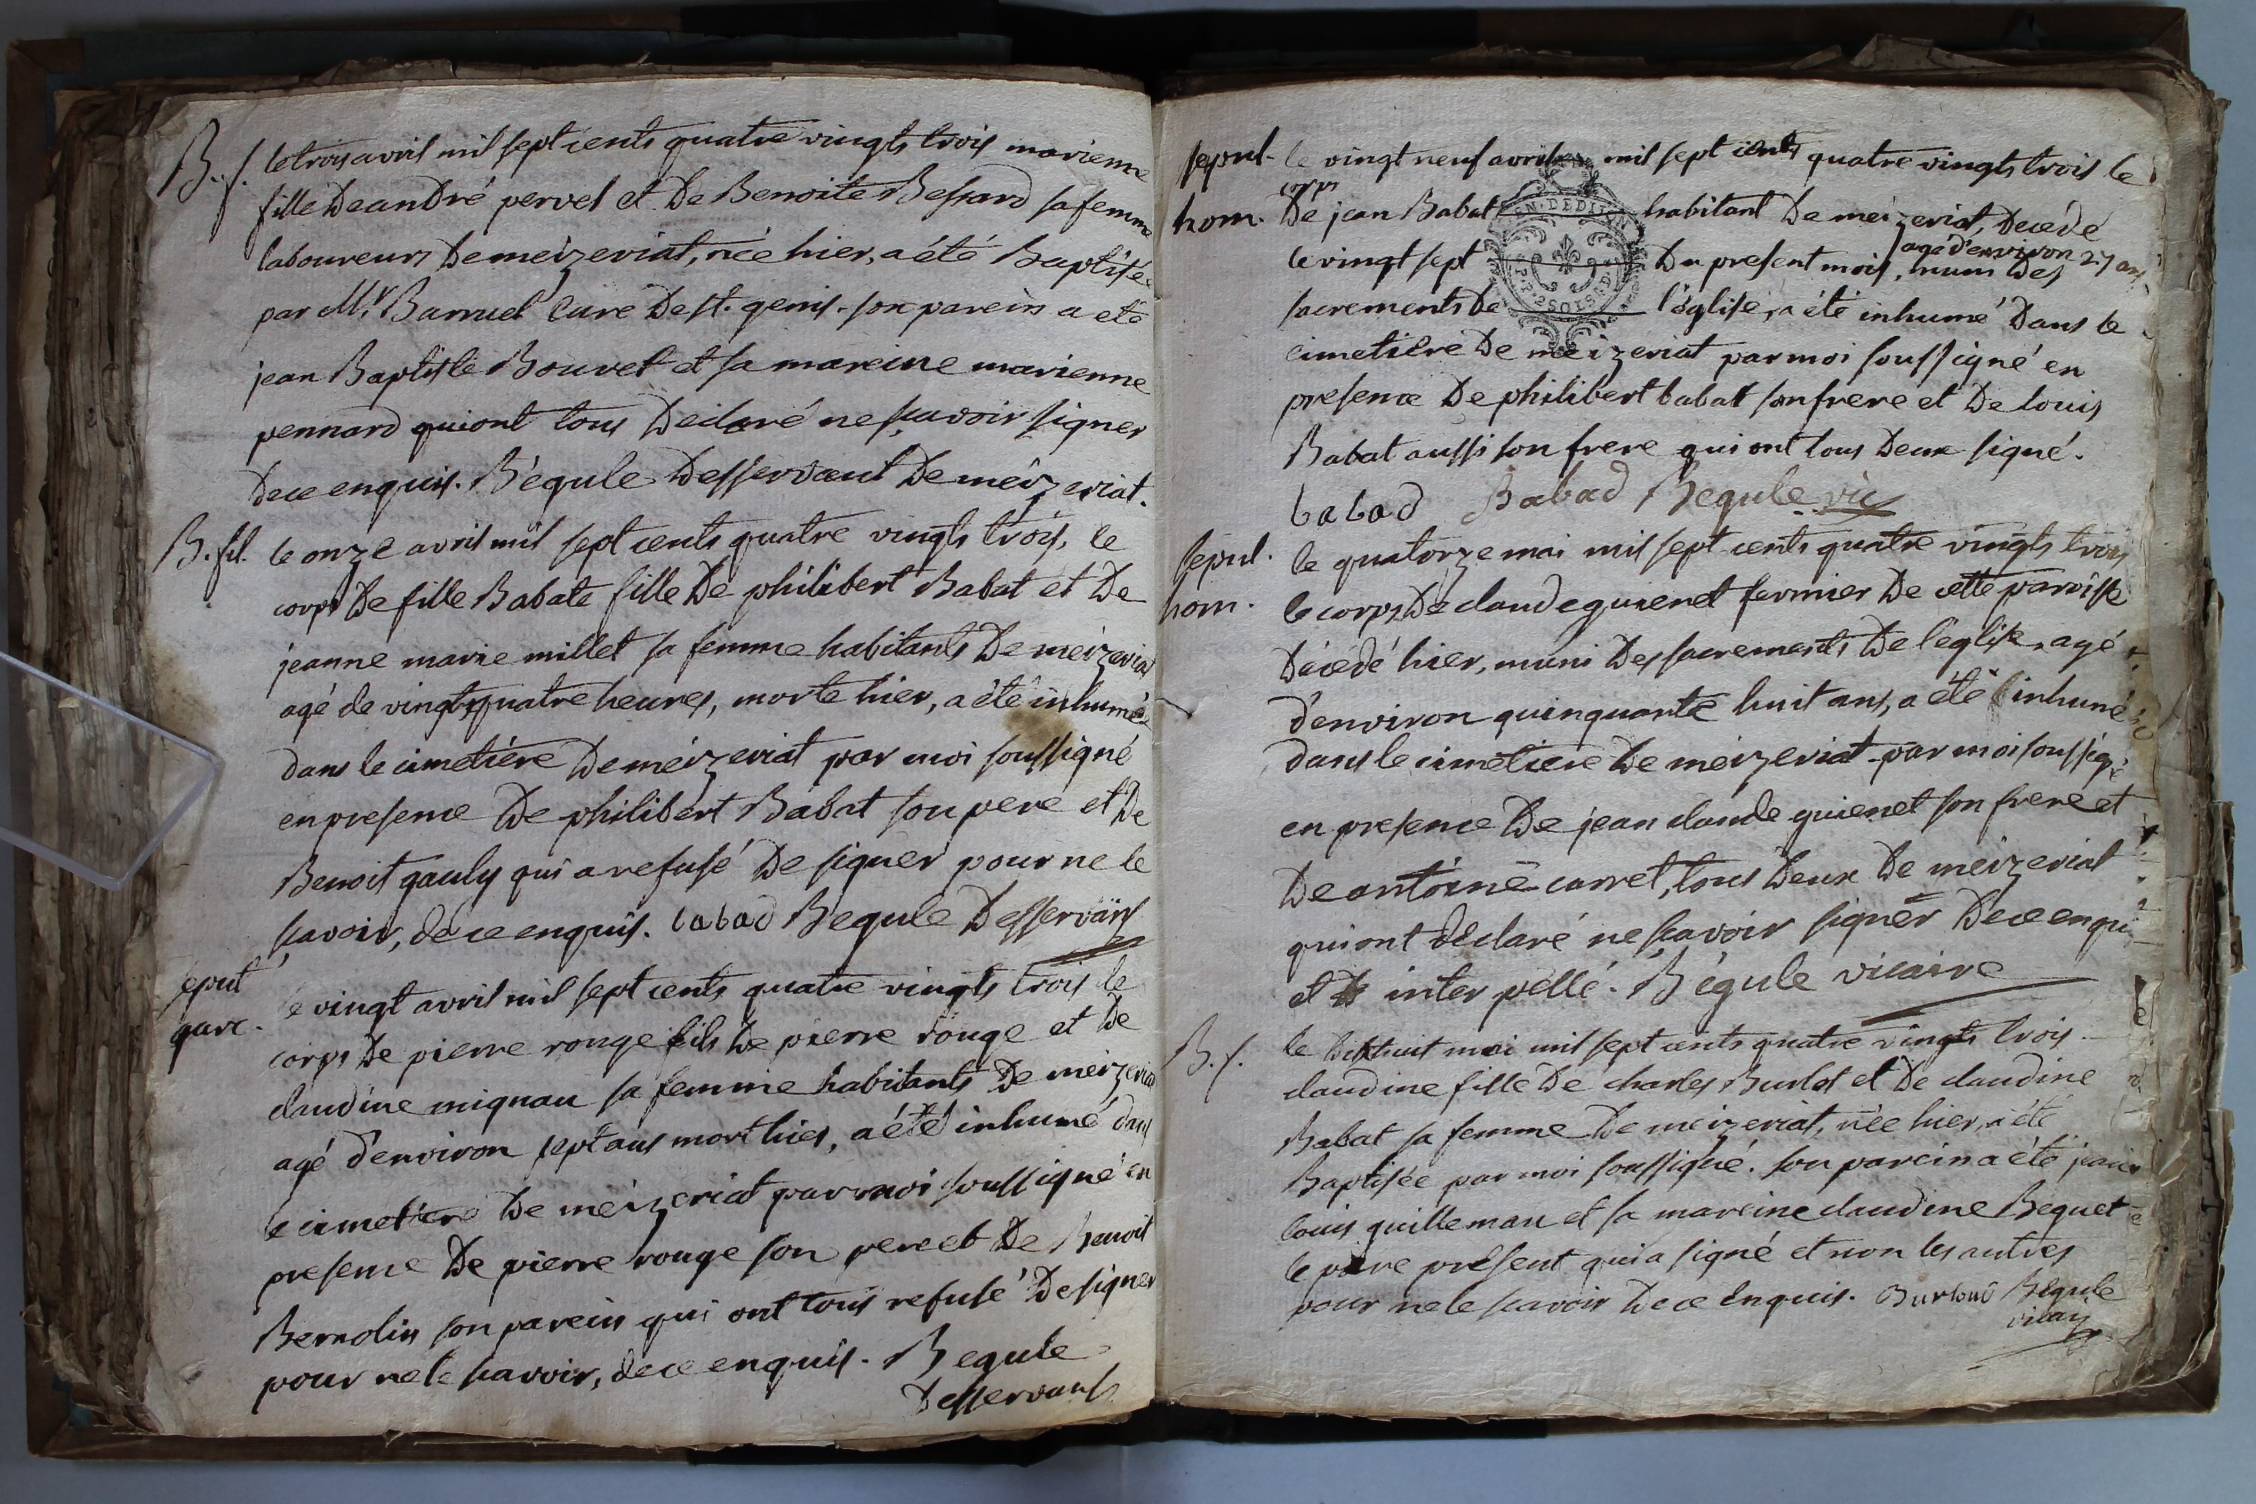 B. f. le trois avril mil sept cents quatre vingts trois marienne
fille De andré pervel et De Benoite Bessard sa femme
laboureurs De meizeriat, née hier, a été Baptisée
par Mr. Barruel Curé De st. genis. son parein a eté
jean Baptiste Bouvet et sa mareine marienne
pennard qui ont tous Declaré ne sçavoir signer
De ce enquis. Bégule Desservant De meizeriat.
B. fil. le onze avril mil sept cents quatre vingts trois, le
corps De fille Babate fille De philibert Babat et De
jeanne marie millet sa femme habitants De meizeriat
agé de vingtquatre heures, morte hier, a été inhumé
dans le cimetiére De meizeriat par moi soussigné
en presence De philibert Babat son pere et De
Benoit gauly qui a refusé De signer pour ne le
scavoir, de ce enquis. babad Begule Desservant
sepul le vingt avril mil sept cents quatre vingts trois le
garc. corps De pierre rouge fils De pierre rouge et De
claudine mignau sa femme habitants De meizeriat
agé d'environ sept ans mort hier, a été inhumé dans
le cimetiere De meizeriat par moi soussigné en
presence De pierre rouge son pere et De Benoit
Bernolin son parein qui ont tous refusé De signer
pour ne le scavoir, de ce enquis. Begule
Desservant
sepul. le vingt neuf avril mil sept cents quatre vingts trois le
corps
hom. De jean Babat habitant De meizeriat, Decédé
agé d'environ 27 ans
le vingt sept Du present mois, muni Des
sacrements De l'église, a été inhumé Dans le
cimetière De meizeriat par moi soussigné en
presence De philibert babat son frere et De louis
Babat aussi son frere qui ont tous Deux signé.
babad Babad Begule vic
sepul. le quatorze mai mil sept cents quatre vingts trois
hom. le corps De claude guienet fermier De cette paroisse
Décédé hier, muni Des sacrements De l'eglise, agé
d'environ quinquante huit ans, a été inhumé
dans le cimetiere De meizeriat par moi soussigé
en presence De jean claude guienet son frere et
De antoine carret, tous Deux De meizeriat
qui ont déclaré ne scavoir signer De ce enquis
et inter pellé. Bégule vicaire
B. f. le Dixhuit mai mil sept cents quatre vingts trois
claudine fille De charles Burlot et De claudine
Babat sa femme De meizeriat, née hier, a été
Baptisée par moi soussigné. son parein a été jean
louis guilleman et sa mareine claudine Beguet
le père présent qui a signé et non les autres
pour ne le scavoir De ce Enquis. Burloud Bégule
vicair